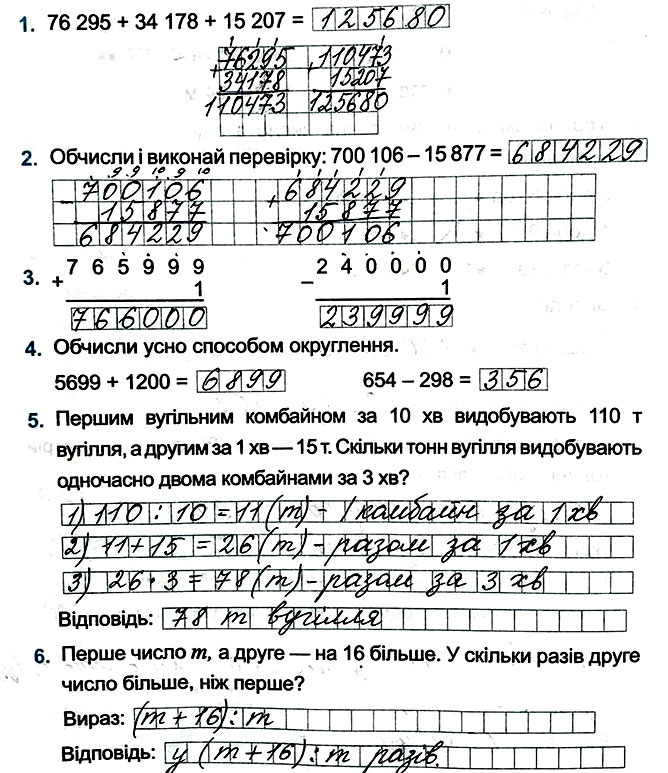 1. 76 295 + 34 178 + 15 207 = 125680
76295 110473
+ 34178 + 15207
110473 125680
2. Обчисли і виконай перевірку: 700 106 – 15 877 = 684229
9 9 10 9 10
700106 + 684229
– 15877 15877
684229 700106
3. + 765999 – 240000
1 1
766000 239999
4. Обчисли усно способом округлення.
5699 + 1200 = 6899 654 – 298 = 356
5. Першим вугільним комбайном за 10 хв видобувають 110 т
вугілля, а другим за 1 хв — 15 т. Скільки тонн вугілля видобувають
одночасно двома комбайнами за 3 хв?
1) 110 : 10 = 11 (т) - 1 комбайн за 1 хв
2) 11 + 15 = 26 (т) - разом за 1 хв
3) 26 · 3 = 78 (т) - разом за 3 хв
Відповідь: 78 т вугілля
6. Перше число m, а друге — на 16 більше. У скільки разів друге
число більше, ніж перше?
Вираз: (m + 16) : m
Відповідь: у (m + 16) : m разів.